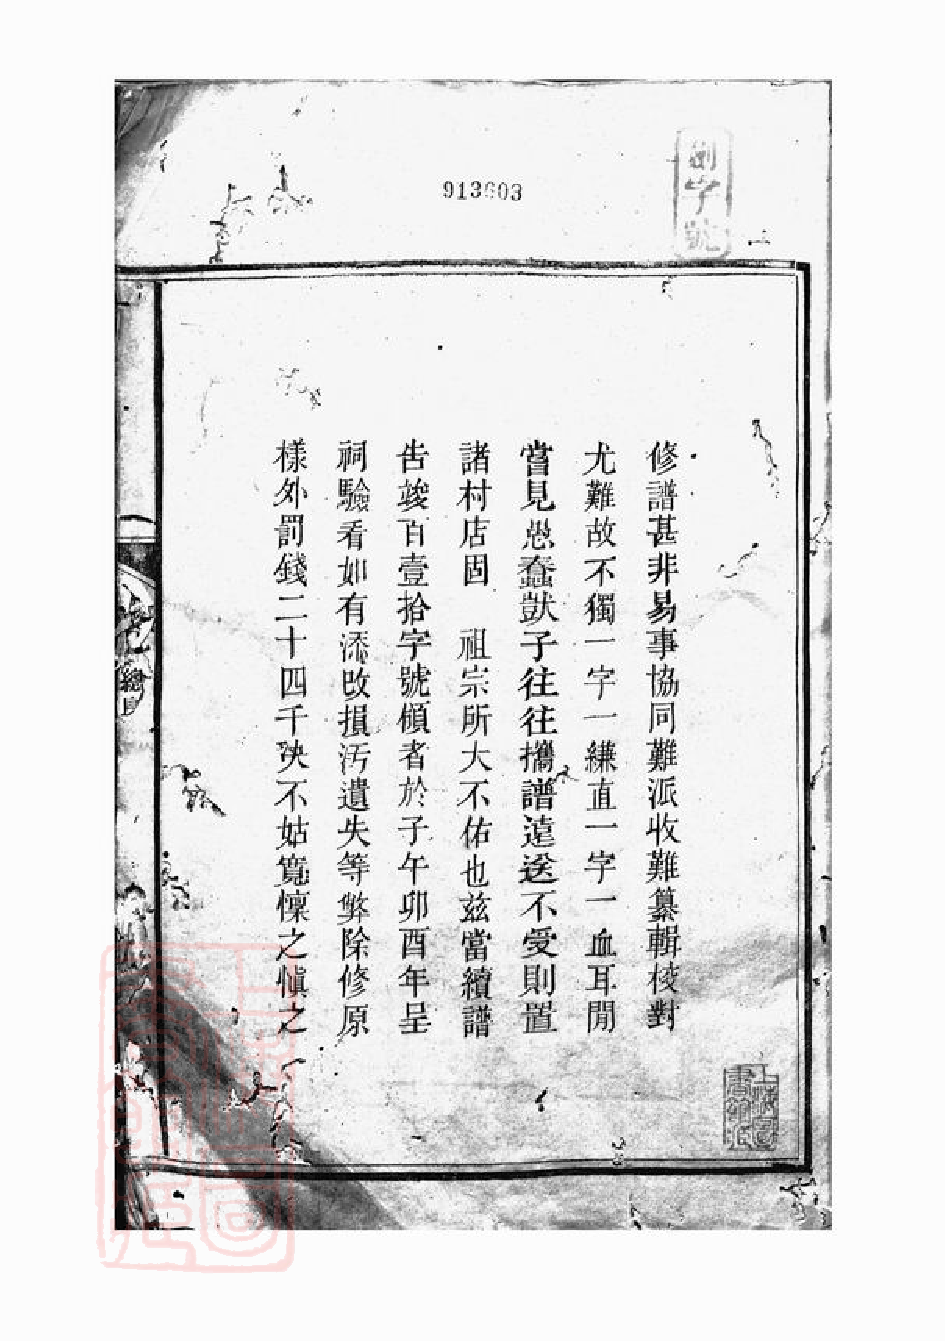 913603
字號
修譜甚非易事協同難派收難纂輯校對
尤難故不獨一字一縑直一字一血耳閒
嘗見愚蠢獃子往往攜譜遠送不受則置
諸村店固　祖宗所大不佑也兹當續譜
告竣百壹拾字號領者於子午卯酉年呈
祠驗看如有添改損汚遺失等弊除修原
樣外罰錢二十四千决不姑寬懍之愼之
總目
上海圖書館藏